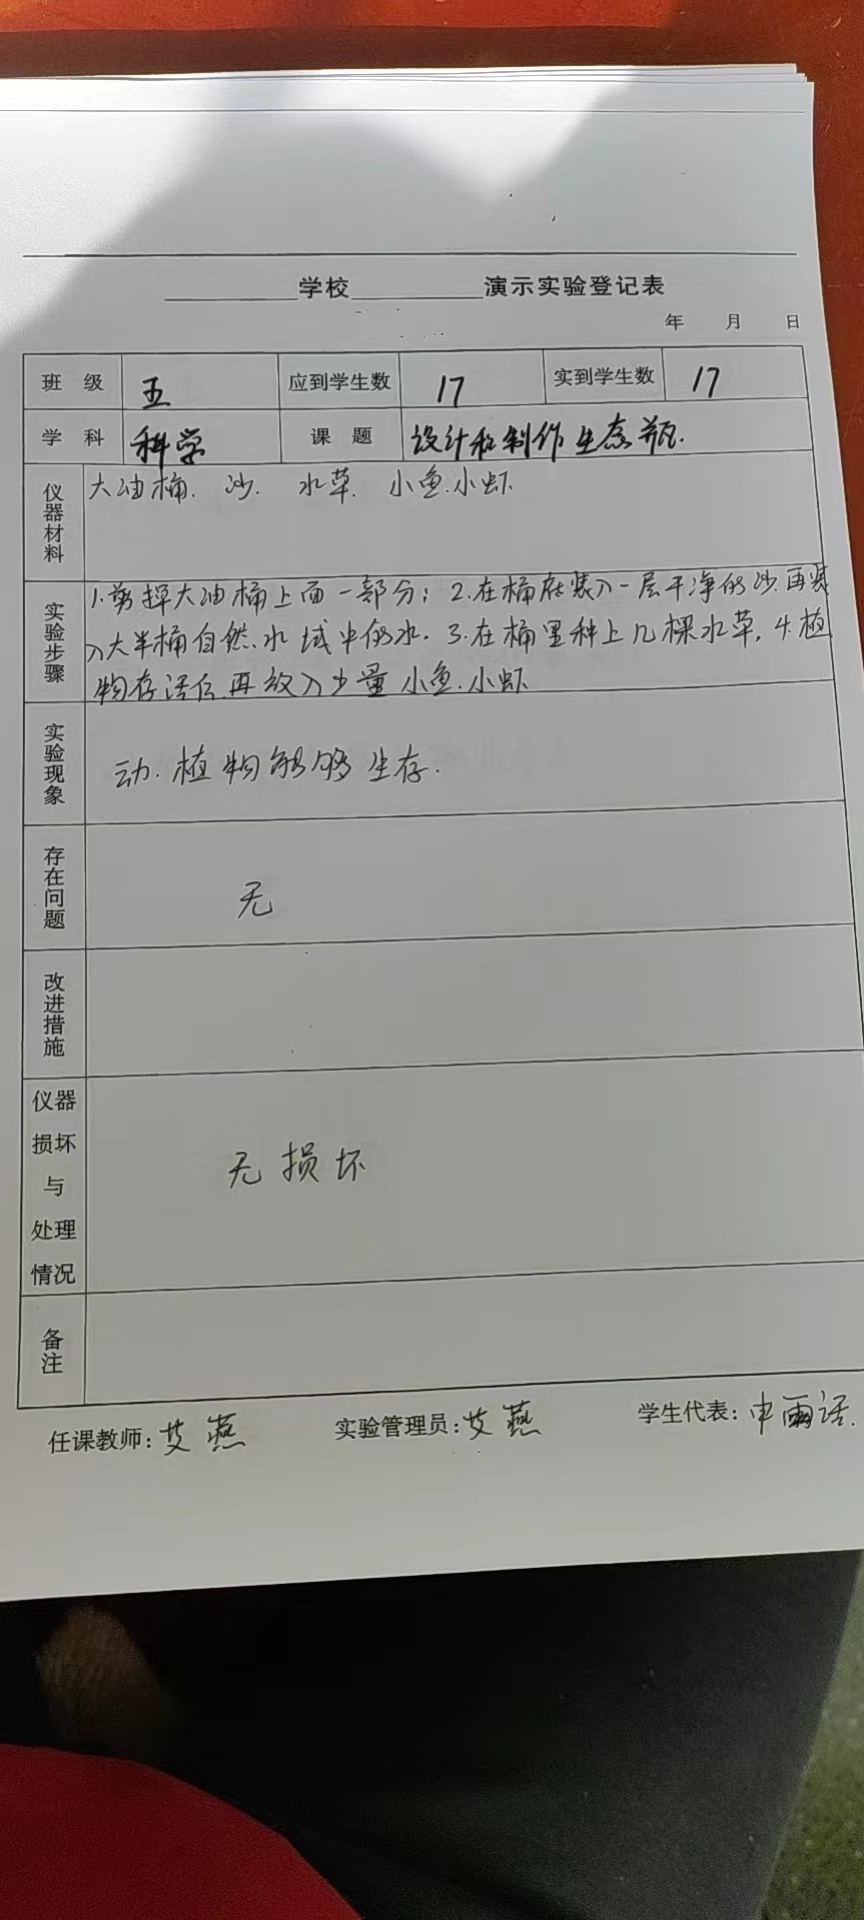 学校 演示实验登记表
年 月 日
班级 五 应到学生数 17 实到学生数 17
学科 科学 课题 设计和制作生态瓶.
仪器材料 大油桶. 沙. 水草. 小鱼.小虾
实验步骤 1.剪掉大油桶上面一部分; 2.在桶底装入一层干净的沙.再装
入大半桶自然水域中的水. 3.在桶里种上几棵水草. 4.植
物存活后.再放入少量小鱼.小虾
实验现象 动.植物能够生存.
存在问题 无
改进措施
仪器损坏与处理情况 无损坏
备注
任课教师:艾燕 实验管理员:艾燕 学生代表:申雨话.